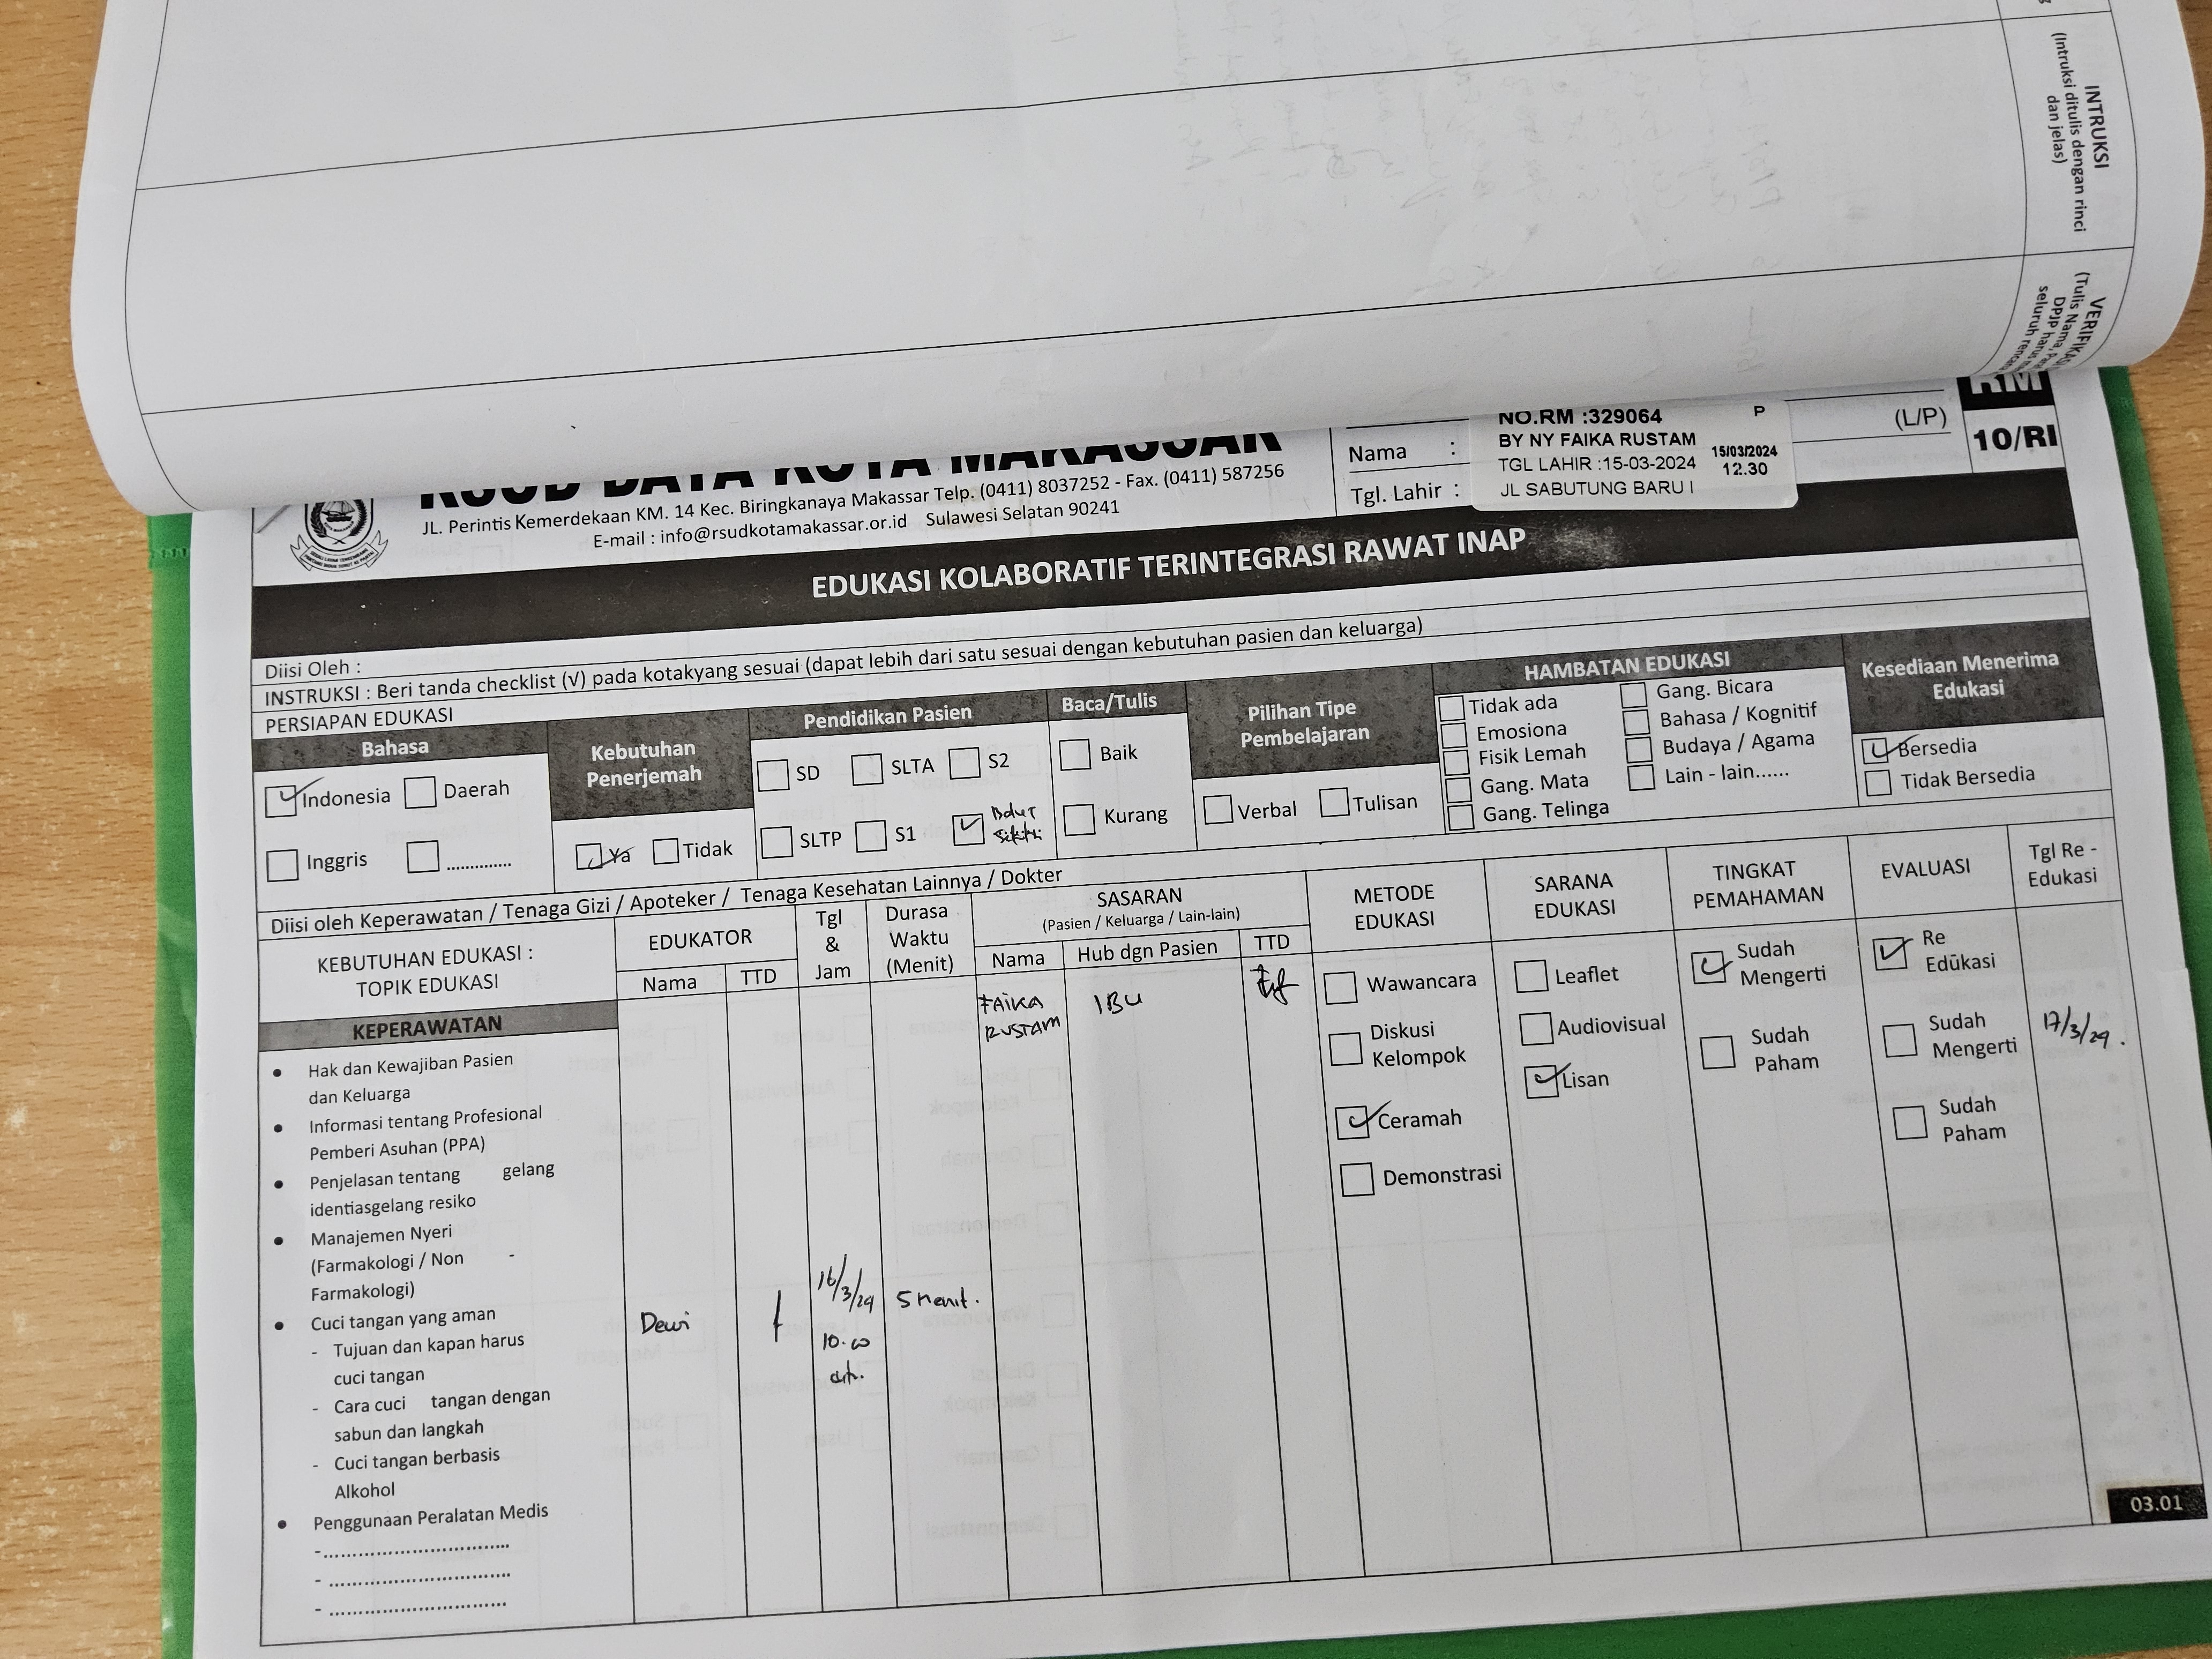 INTRUKSI
(Intruksi ditulis dengan rinci
dan jelas)
(Tulis Nama,
DPJP harus
seluruh
RM
10/RI
(L/P)
RSUD DAYA KOTA MAKASSAR
JL. Perintis Kemerdekaan KM. 14 Kec. Biringkanaya Makassar Telp. (0411) 8037252 - Fax. (0411) 587256
E-mail : info@rsudkotamakassar.or.id Sulawesi Selatan 90241
Nama :
Tgl. Lahir :
NO.RM :329064 P
BY NY FAIKA RUSTAM
TGL LAHIR :15-03-2024
15/03/2024
12.30
JL SABUTUNG BARU I
EDUKASI KOLABORATIF TERINTEGRASI RAWAT INAP
Diisi Oleh :
INSTRUKSI : Beri tanda checklist (√) pada kotakyang sesuai (dapat lebih dari satu sesuai dengan kebutuhan pasien dan keluarga)
PERSIAPAN EDUKASI
Bahasa
Indonesia Daerah
Inggris .............
Kebutuhan
Penerjemah
Ya Tidak
Pendidikan Pasien
SD SLTA S2
SLTP S1
Baca/Tulis
Baik
Kurang
Pilihan Tipe
Pembelajaran
Verbal Tulisan
HAMBATAN EDUKASI
Tidak ada Gang. Bicara
Emosiona Bahasa / Kognitif
Fisik Lemah Budaya / Agama
Gang. Mata Lain - lain......
Gang. Telinga
Kesediaan Menerima
Edukasi
Bersedia
Tidak Bersedia
Diisi oleh Keperawatan / Tenaga Gizi / Apoteker / Tenaga Kesehatan Lainnya / Dokter
KEBUTUHAN EDUKASI :
TOPIK EDUKASI
EDUKATOR
Nama TTD
Tgl
&
Jam
Durasa
Waktu
(Menit)
SASARAN
(Pasien / Keluarga / Lain-lain)
Nama Hub dgn Pasien TTD
METODE
EDUKASI
SARANA
EDUKASI
TINGKAT
PEMAHAMAN
EVALUASI
Tgl Re -
Edukasi
KEPERAWATAN
• Hak dan Kewajiban Pasien
dan Keluarga
• Informasi tentang Profesional
Pemberi Asuhan (PPA)
• Penjelasan tentang gelang
identiasgelang resiko
• Manajemen Nyeri
(Farmakologi / Non -
Farmakologi)
• Cuci tangan yang aman
- Tujuan dan kapan harus
cuci tangan
- Cara cuci tangan dengan
sabun dan langkah
- Cuci tangan berbasis
Alkohol
• Penggunaan Peralatan Medis
-................................
- ...............................
- ..............................
Dewi
16/3/24
10.00
5 menit.
FAIKA
RUSTAM
IBU
Wawancara
Diskusi
Kelompok
Ceramah
Demonstrasi
Leaflet
Audiovisual
Lisan
Sudah
Mengerti
Sudah
Paham
Re
Edukasi
Sudah
Mengerti
Sudah
Paham
17/3/24.
03.01